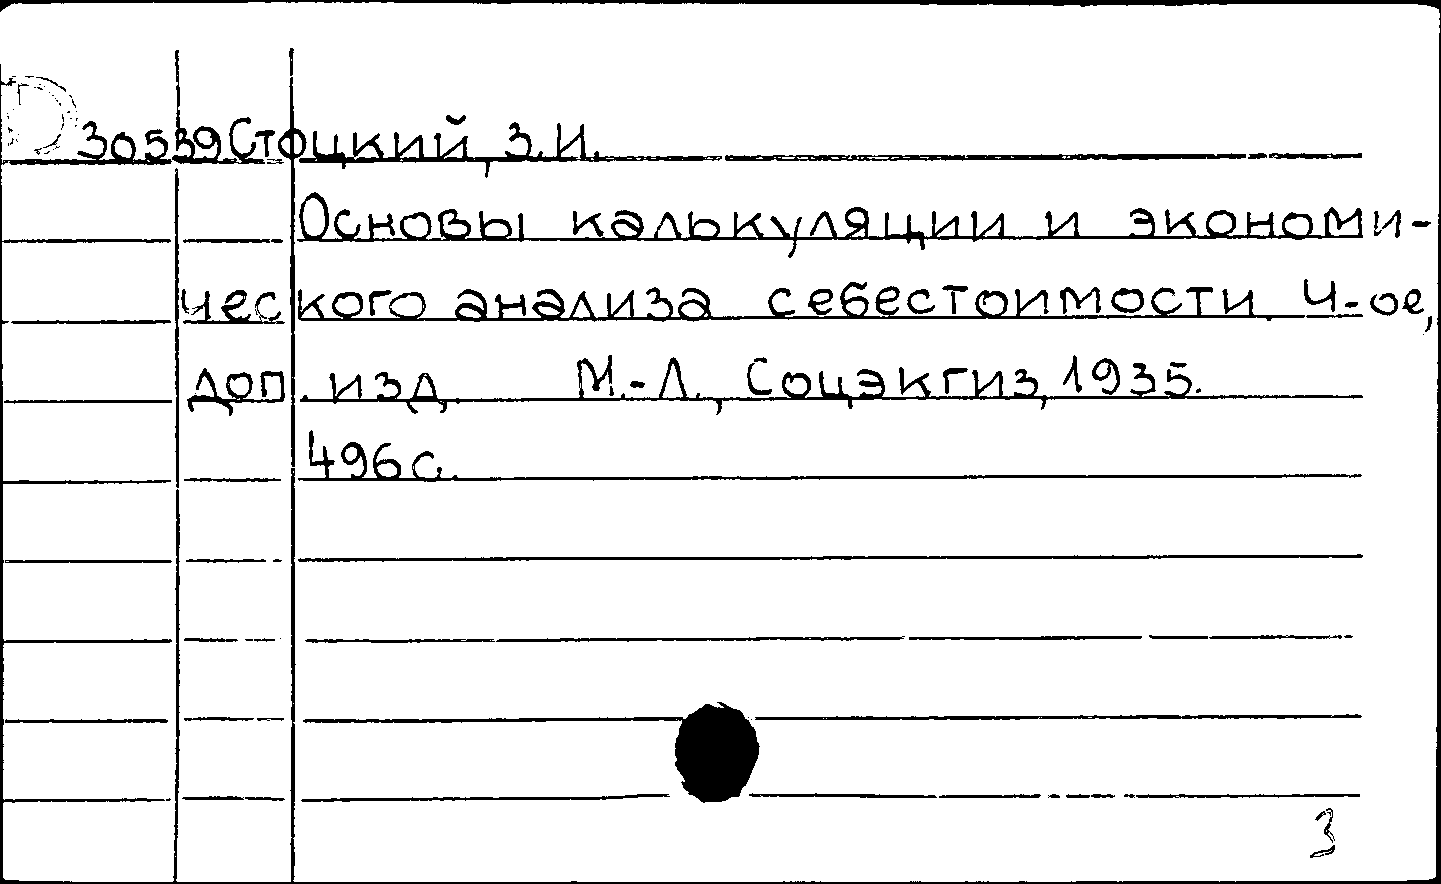 30539 Стоцкий, З.И.
Основы калькуляции и экономи-
ческого анализа себестоимости. 4-ое,
доп. изд. М.-Л., Соцэкгиз, 1935.
496 с.
3